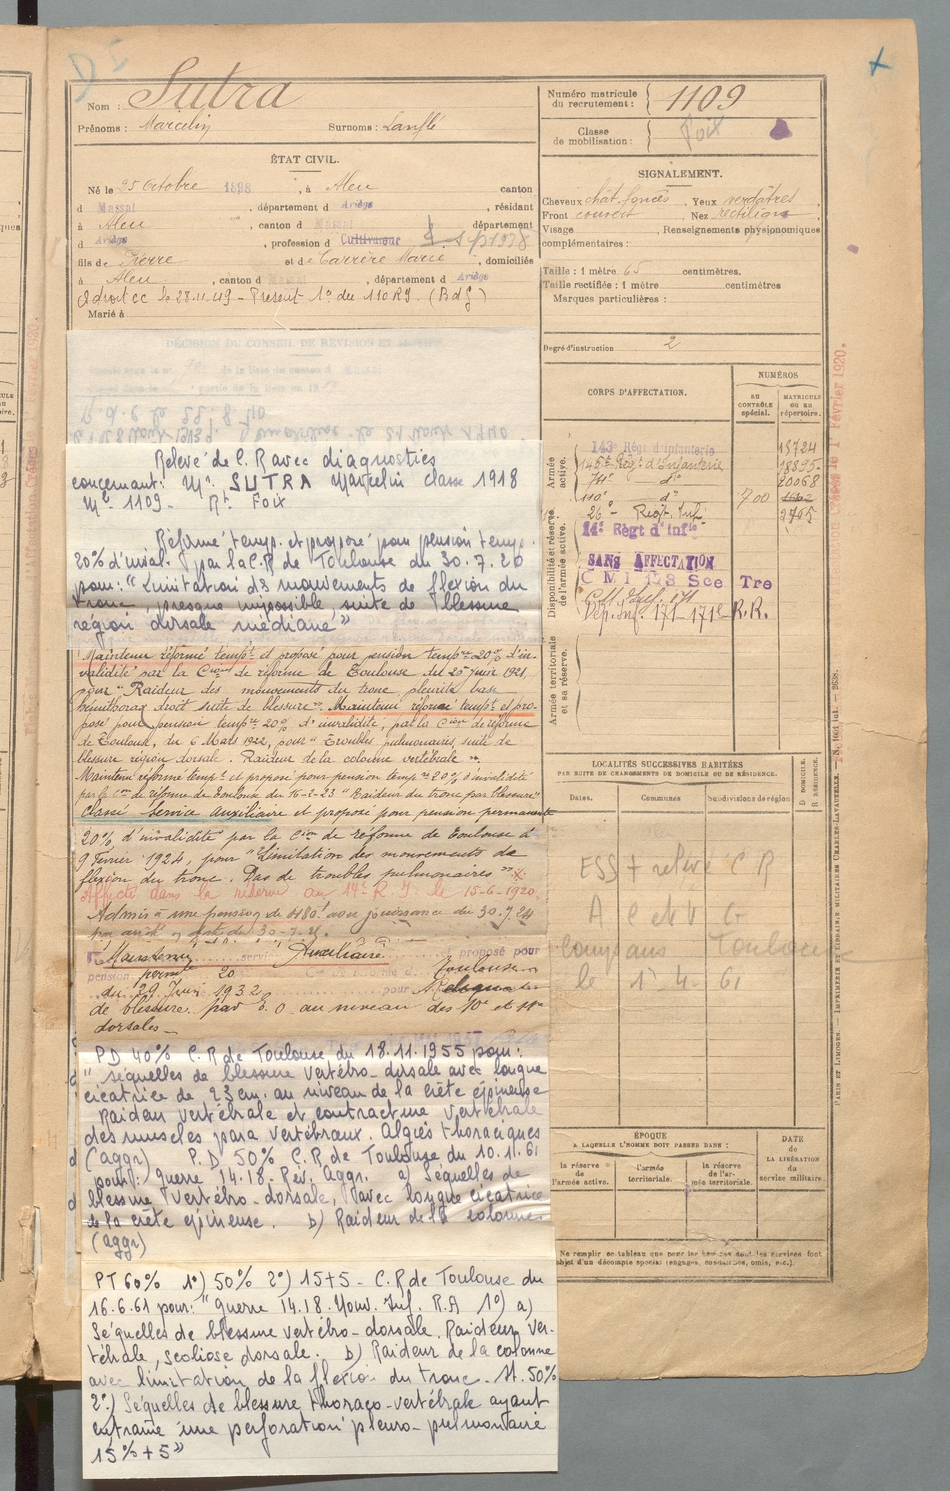 Nom : Sutra
Prénoms : Marcelin Surnoms : Lanflé
ÉTAT CIVIL.
Né le 25 Octobre 1898, à Aleu canton
d Massat, département d Ariège, résidant
à Aleu, canton d Massat département
d Ariège, profession d Cultivateur
fils de Pierre et de Carrère Marie, domiciliés
à Aleu, canton d Massat, département d Ariège
Marié à
DÉCISION DU CONSEIL DE RÉVISION ET MOTIFS
Numéro matricule du recrutement : 1109
Classe de mobilisation : Foix
SIGNALEMENT.
Cheveux chât. foncés, Yeux verdâtres,
Front couvert Nez rectiligne
Visage, Renseignements physionomiques
complémentaires :
Taille : 1 mètre 65 centimètres.
Taille rectifiée : 1 mètre centimètres
Marques particulières :
Degré d'instruction 2
CORPS D'AFFECTATION.
NUMÉROS
AU CONTRÔLE spécial.
MATRICULE OU AU répertoire.
Armée active.
143e Régt d'infanterie 15724
146e Rég. d'Infanterie 18895
do 20068
110e do 700
26e Régt Inf 2765
Disponibilité et réserve de l'armée active.
14e Régt d'Infie
SANS AFFECTATION
C M I 173 Sce Tre
Dép. Inf. 171 - 171e R.R.
Armée territoriale et sa réserve.
LOCALITÉS SUCCESSIVES HABITÉES
PAR SUITE DE CHANGEMENTS DE DOMICILE OU DE RÉSIDENCE.
Dates. Communes Subdivisions de région
D DOMICILE.
R RÉSIDENCE.
ESS + relevé C R
Toulouse
le 1-4-61
ÉPOQUE
A LAQUELLE L'HOMME DOIT PASSER DANS :
la réserve de l'armée active.
l'armée territoriale.
la réserve de l'armée territoriale.
DATE de LA LIBÉRATION du service militaire.
Ne remplir ce tableau que pour les hommes dont les services font
objet d'un décompte spécial (engagés, exclus, omis, etc.).
Relevé de C. R avec diagnostics
concernant : Mr. SUTRA Marcelin classe 1918
Mle 1109 - Rt Foix
Réformé temp. et proposé pour pension temp.
20% d'inval. par la C.R de Toulouse du 30.7.20
pour : "Limitation ds mouvements de flexion du
tronc, presque impossible, suite de blessure
région dorsale médiane"
Maintenu réformé tempre et proposé pour pension tempre 20% d'in-
validité par la Cion de réforme de Toulouse du 25 juin 1921,
pour "Raideur des mouvements du tronc pleurite base
hémithorax droit suite de blessure". Maintenu réformé tempre et pro-
posé pour pension tempre 20% d'invalidité, par la Cion de réforme
de Toulouse, du 6 Mars 1922, pour "Troubles pulmonaires, suite de
blessure région dorsale. Raideur de la colonne vertébrale".
Maintenu réformé tempre et proposé pour pension tempre 20% d'invalidité
par la Cion de réforme de Toulouse du 16-2-23 "Raideur du tronc par blessure"
Classé Service Auxiliaire et proposé pour pension permanente
20% d'invalidité par la Cion de réforme de Toulouse du
9 Février 1924, pour "Limitation des mouvements de
flexion du tronc. Pas de troubles pulmonaires".
Affecté dans la réserve au 14e R.I. le 15-6-1920.
Admis à une pension de 480f avec jouissance du 30.7.24
Maintenu service Auxiliaire proposé pour
pension perm 20 Toulouse
du 29 Janv 1932 pour
de blessure par E.O au niveau des 10e et 11e
dorsales
PD 40% C.R de Toulouse du 18.11.1955 pour :
"Séquelles de blessure vertébro-dorsale avec longue
cicatrice de 23 cm. au niveau de la crête épineuse
Raideur vertébrale et contracture vertébrale
des muscles para vertébraux. Algies thoraciques
(aggr) P.D 50% C.R de Toulouse du 10.11.61
pour : guerre 14.18. Rév. Aggr. a) Séquelles de
blessure vertébro-dorsale, avec longue cicatrice
de la crête épineuse. b) Raideur de la colonne
(aggr)
PT 60% 1°) 50% 2°) 15+5 - C.R de Toulouse du
16.6.61 pour : "guerre 14.18. Nouv. Inf. R.A 1°) a)
Séquelles de blessure vertébro-dorsale, Raideur ver-
tébrale, scoliose dorsale. b) Raideur de la colonne
avec limitation de la flexion du tronc. 50%
2°) Séquelles de blessure thoraco-vertébrale ayant
entraîné une perforation pleuro-pulmonaire
15% + 5"